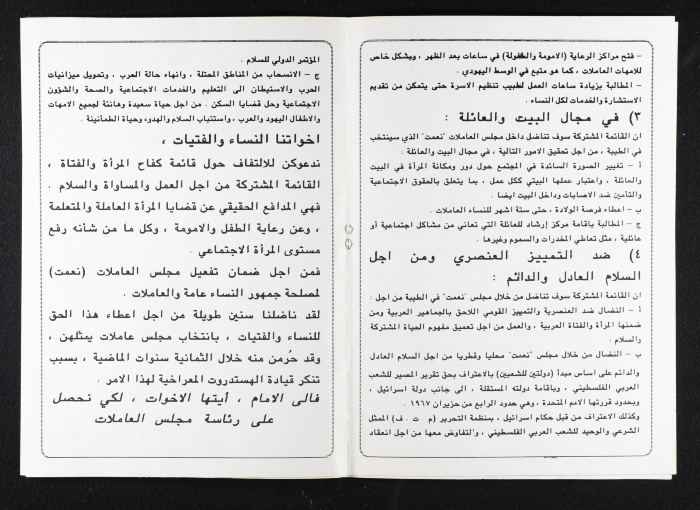 – فتح مراكز الرعاية (الامومة والطفولة) في ساعات بعد الظهر ، وبشكل خاص
للامهات العاملات ، كما هو متبع في الوسط اليهودي .
– المطالبة بزيادة ساعات العمل لطبيب تنظيم الاسرة حتى يتمكن من تقديم
الاستشارة والخدمات لكل النساء .
٣) في مجال البيت والعائلة :
ان القائمة المشتركة سوف تناضل داخل مجلس العاملات "نعمت" الذي سينتخب
في الطيبة ، من اجل تحقيق الامور التالية ، في مجال البيت والعائلة :
أ – تغيير الصورة السائدة في المجتمع حول دور ومكانة المرأة في البيت
والعائلة ، واعتبار عملها البيتي ككل عمل ، بما يتعلق بالحقوق الاجتماعية
والتأمين ضد الاصابات وداخل البيت ايضا .
ب – اعطاء فرصة الولادة ، حتى ستة اشهر للنساء العاملات .
ج – المطالبة باقامة مركز إرشاد للعائلة التي تعاني من مشاكل اجتماعية أو
عائلية ، مثل تعاطي المخدرات والسموم وغيرها .
٤) ضد التمييز العنصري ومن اجل
السلام العادل والدائم :
ان القائمة المشتركة سوف تناضل من خلال مجلس "نعمت" في الطيبة من اجل :
أ – النضال ضد العنصرية والتمييز القومي اللاحق بالجماهير العربية ومن
ضمنها المرأة والفتاة العربية ، والعمل من اجل تعميق مفهوم الحياة المشتركة
والسلام .
ب – النضال من خلال مجلس "نعمت" محليا وقطريا من اجل السلام العادل
والدائم على اساس مبدأ (دولتين للشعبين) بالاعتراف بحق تقرير المصير للشعب
العربي الفلسطيني ، وباقامة دولته المستقلة ، الى جانب دولة اسرائيل ،
وبحدود قررتها الامم المتحدة ، وهي حدود الرابع من حزيران ١٩٦٧ .
وكذلك الاعتراف من قبل حكام اسرائيل ، بمنظمة التحرير (م . ت . ف) الممثل
الشرعي والوحيد للشعب العربي الفلسطيني ، والتفاوض معها من اجل انعقاد
المؤتمر الدولي للسلام .
ج – الانسحاب من المناطق المحتلة ، وانهاء حالة الحرب ، وتحويل ميزانيات
الحرب والاستيطان الى التعليم والخدمات الاجتماعية والصحة والشؤون
الاجتماعية وحل قضايا السكن . من اجل حياة سعيدة وهانئة لجميع الامهات
والاطفال اليهود والعرب ، واستتباب السلام والهدوء وحياة الطمأنينة .
اخواتنا النساء والفتيات ،
ندعوكن للالتفاف حول قائمة كفاح المرأة والفتاة ،
القائمة المشتركة من اجل العمل والمساواة والسلام .
فهي المدافع الحقيقي عن قضايا المرأة العاملة والمتعلمة
، وعن رعاية الطفل والامومة ، وكل ما من شأنه رفع
مستوى المرأة الاجتماعي .
فمن اجل ضمان تفعيل مجلس العاملات (نعمت)
لمصلحة جمهور النساء عامة والعاملات .
لقد ناضلنا سنين طويلة من اجل اعطاء هذا الحق
للنساء والفتيات ، بانتخاب مجلس عاملات يمثلهن ،
وقد حُرمن منه خلال الثمانية سنوات الماضية ، بسبب
تنكر قيادة الهستدروت المعراخية لهذا الامر .
فالى الامام ، أيتها الاخوات ، لكي نحصل
على رئاسة مجلس العاملات